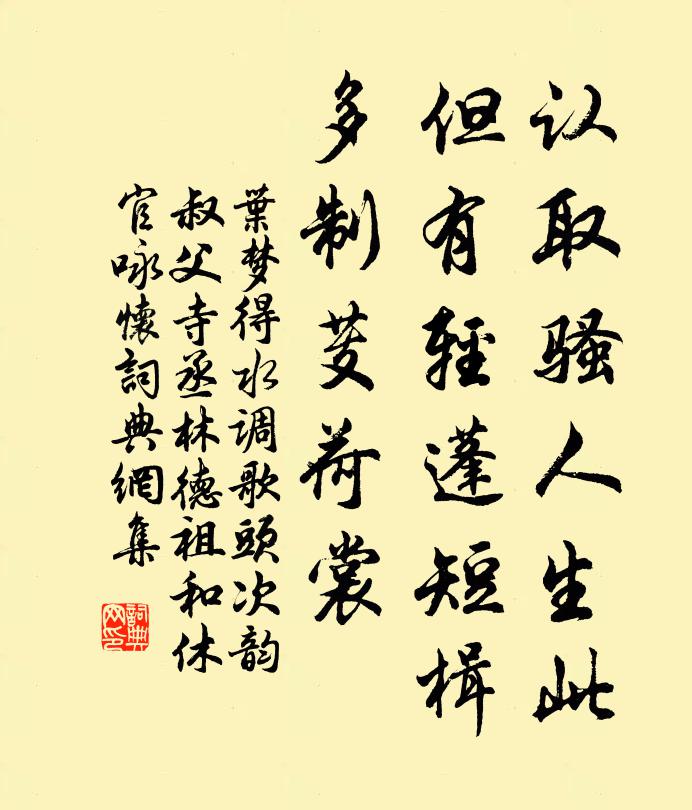 认取骚人生此
但有轻蓬短楫
多制芰荷裳
葉梦得水调歌頭次韵
叔父寺丞林德祖和休
官咏懷詞典網集
詞典网印